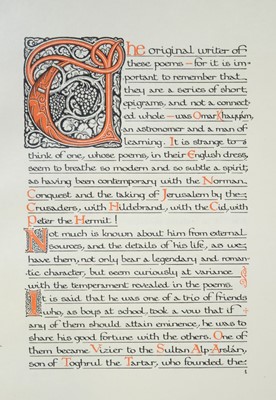 The original writer of
these poems — for it is im-
portant to remember that
they are a series of short,
epigrams, and not a connect-
ed whole — was Omar Khayyám,
an astronomer and a man of
learning. It is strange to
think of one, whose poems, in their English dress,
seem to breathe so modern and so subtle a spirit,
as having been contemporary with the Norman
Conquest and the taking of Jerusalem by the
Crusaders, with Hildebrand, with the Cid, with
Peter the Hermit!
Not much is known about him from external
sources, and the details of his life, as we
have them, not only bear a legendary and roman-
tic character, but seem curiously at variance
with the temperament revealed in the poems.
It is said that he was one of a trio of friends
who, as boys at school, took a vow that if
any of them should attain eminence, he was to
share his good fortune with the others. One of
them became Vizier to the Sultan Alp-Arslán,
son of Toghrul the Tartar, who founded the
1